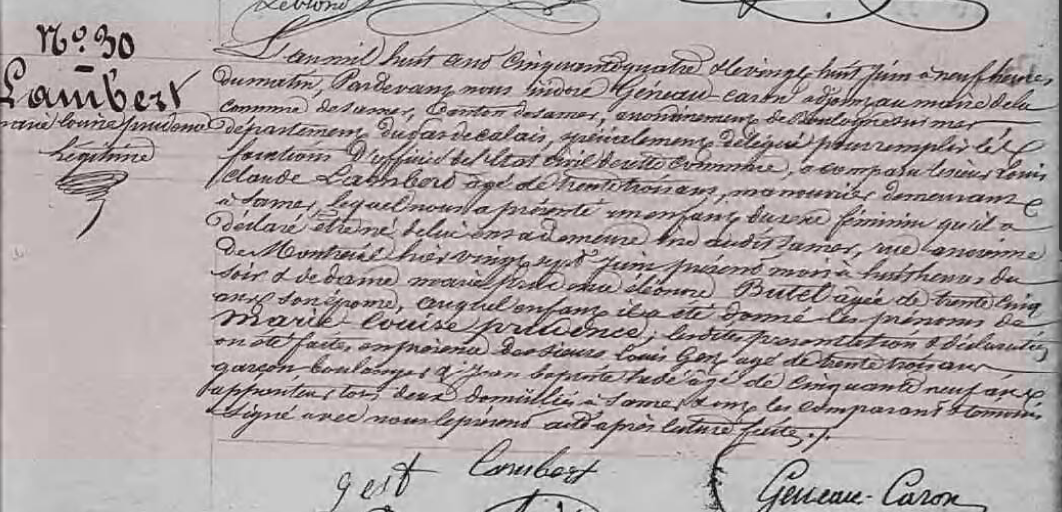 Leblond
N° 30
Lambert
marie louise prudence
Légitime
L'an mil huit cent cinquante quatre & le vingt huit Juin à neuf heures
du matin, Pardevant nous Isidore Géneau-Caron adjoint au maire de la
commune de samer, Canton de samer, arrondissement de Boulogne sur mer
département du Pas de calais, spécialement délégué pour remplir les
fonctions d'officier de l'état civil de cette commune, a comparu le sieur Louis
Claude Lambert âgé de trente trois ans, manouvrier demeurant
à Samer, lequel nous a présenté un enfant du sexe féminin qu'il a
déclaré être né de lui en sa demeure audit Samer, rue ancienne
de Montreuil hier vingt sept Juin présent mois à huit heures du
soir & de dame marie éléonore Butel âgée de trente cinq
ans son épouse, auquel enfant il a été donné les prénoms de
Marie Louise prudence, lesdites présentation & déclaration
ont été faites en présence des sieurs Louis Gest agé de trente trois ans
garçon boulanger & Jean baptiste âgé de cinquante neuf ans
tous deux domiciliés à Samer & ont les comparant & témoins
signé avec nous le présent acte après lecture faite ./.
gest Lambert Géneau-Caron